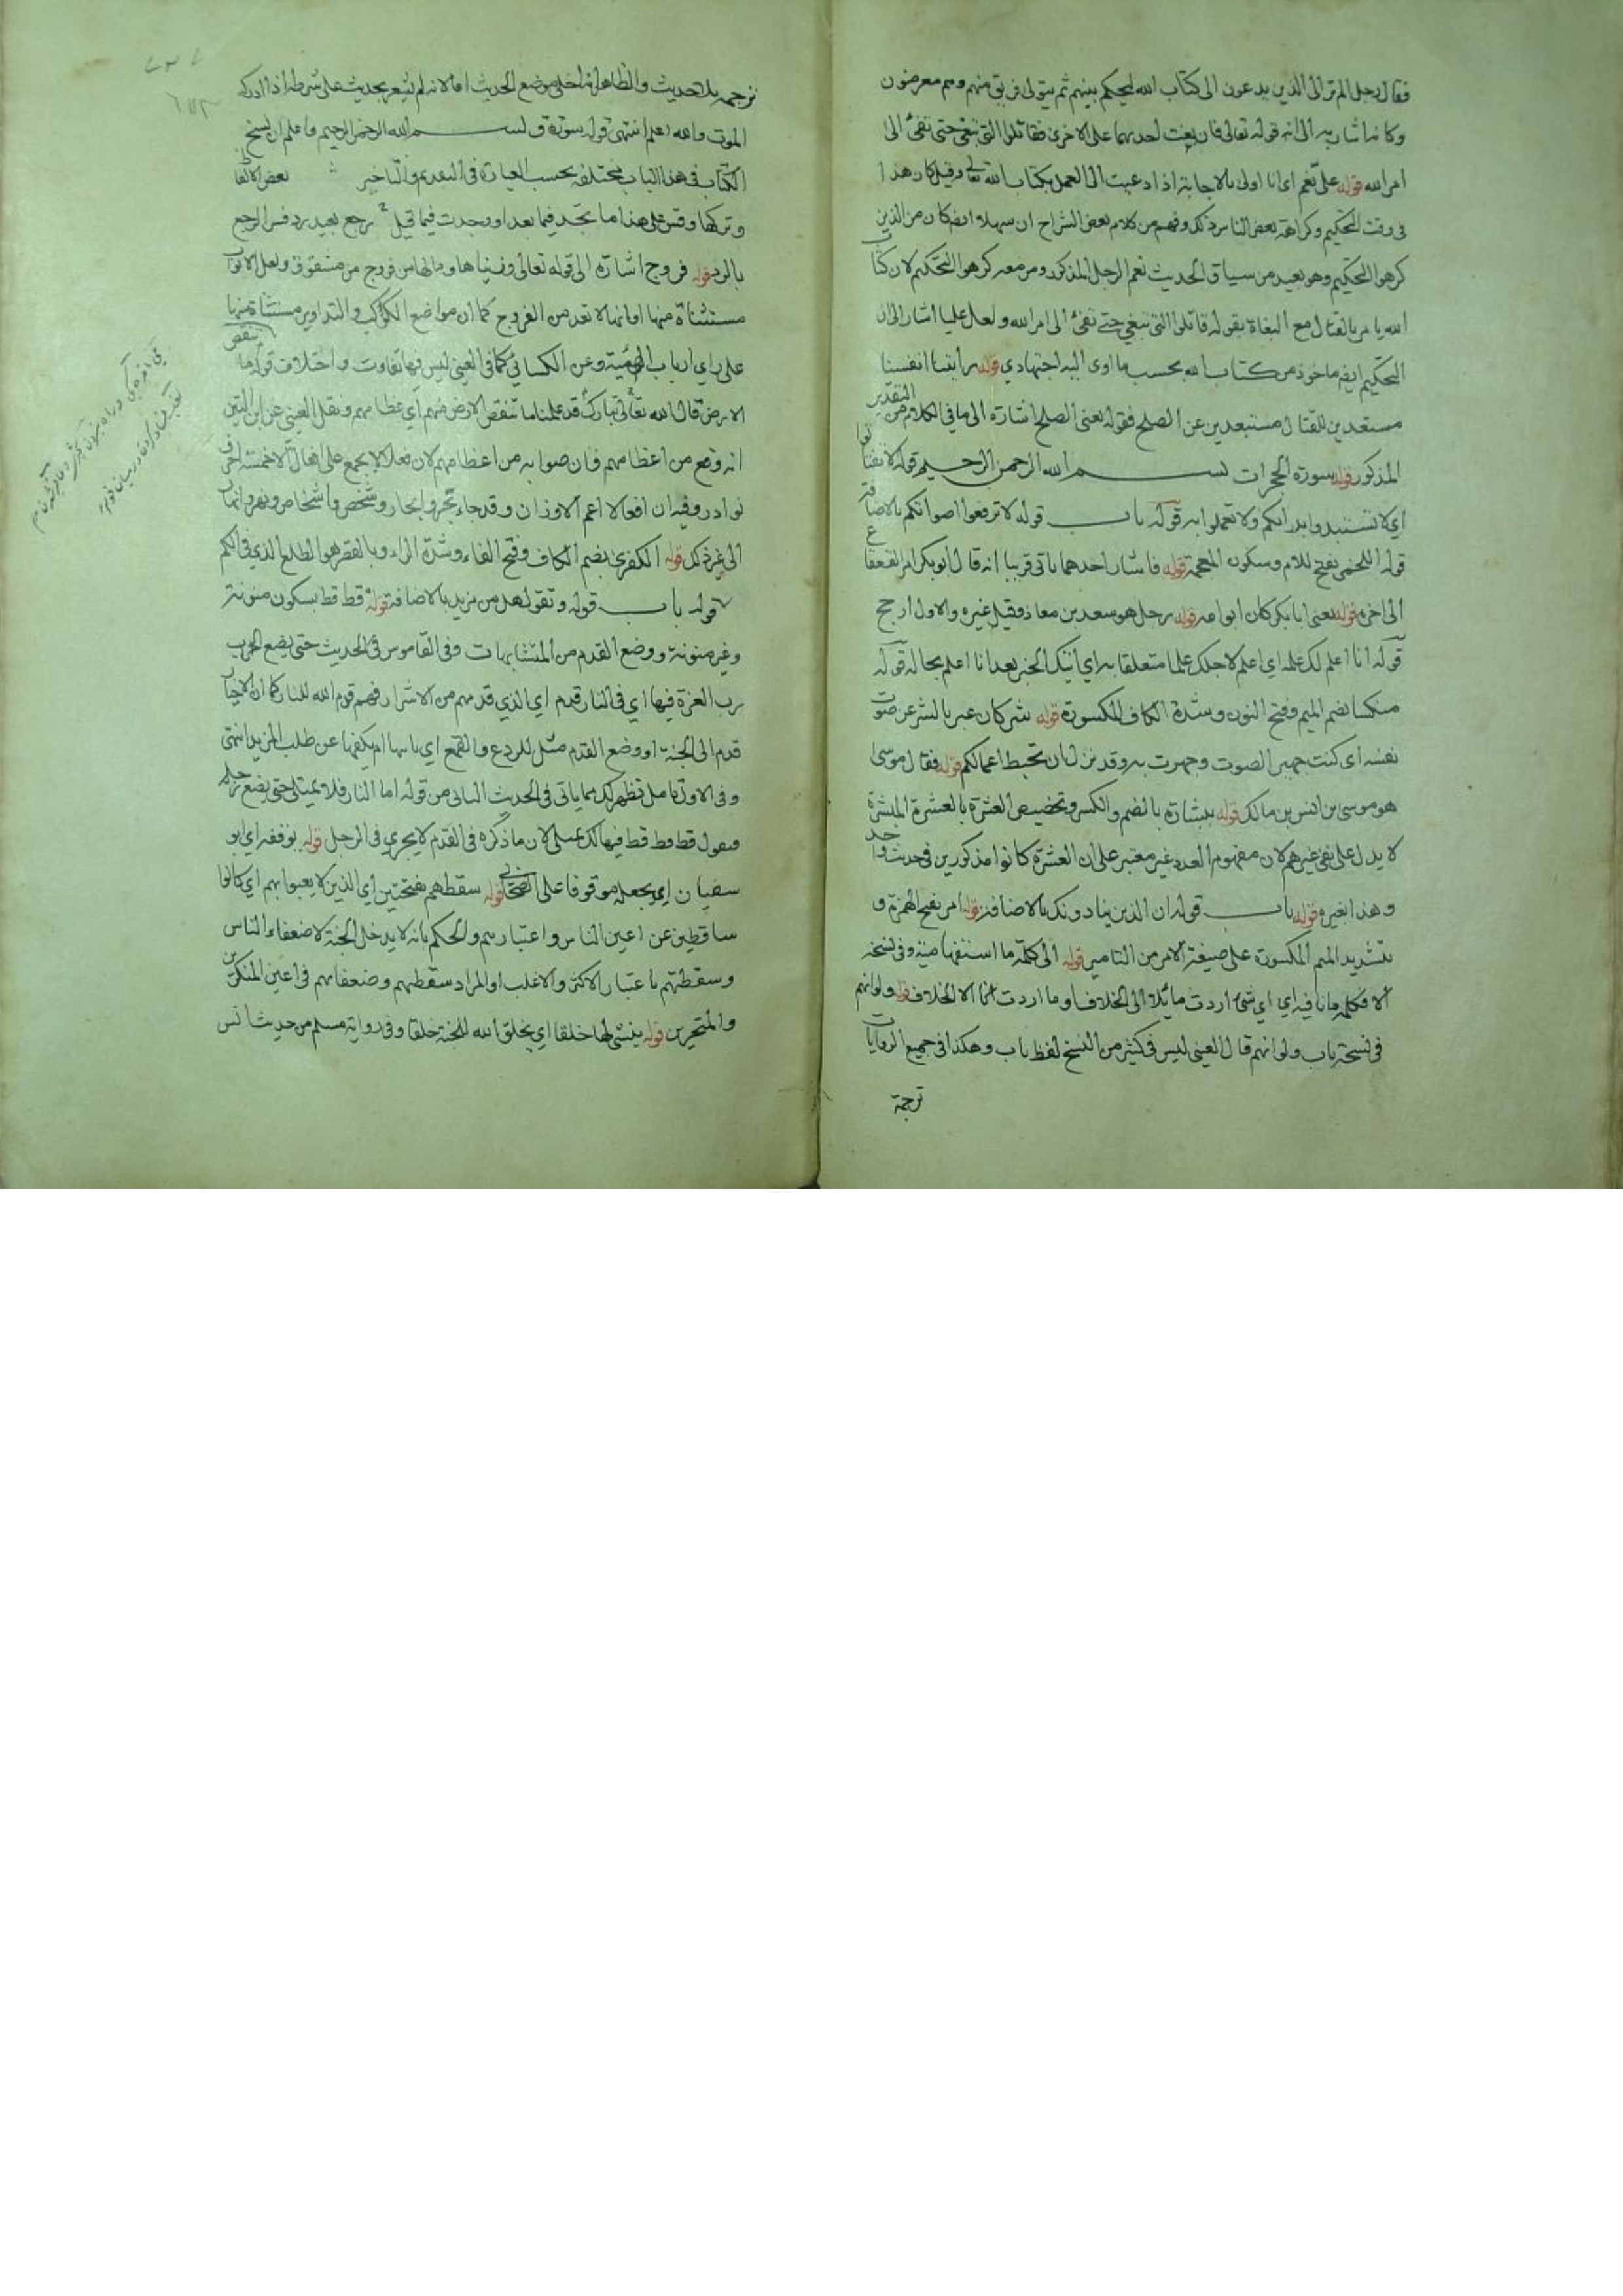 فقال رجل الم تر الى الذين يدعون الى كتاب الله ليحكم بينهم ثم يتولى فريق منهم وهم معرضون
وكانه اشار به الى انه قوله تعالى فان بغت احديهما على الاخرى فقاتلوا التى تبغى حتى تفئ الى
امر الله قوله على نعم اى انا اولى بالاجابة اذا دعيت الى العمل بكتاب الله تعالى وقيل كان هذا
فى وقت التحكيم وكراهة بعض الناس ذلك وفهم من كلام بعض الشراح ان سهلا ايضا كان من الذين
كرهوا التحكيم وهو بعيد من سياق الحديث نعم الرجل المذكور ومن معه كرهوا التحكيم لان كتاب
الله يامر بالقتال مع البغاة بقوله قاتلوا التى تبغى حتى تفئ الى امر الله ولعل عليا اشار الى ان
التحكيم ايضا ماخوذ من كتاب الله بحسب ما ادى اليه اجتهادي قوله رأيتنا انفسنا
مستعدين للقتال مستبعدين عن الصلح فقوله يعنى الصلح اشارة الى ما فى الكلام من التقدير
المذكور قوله سورة الحجرات بسم الله الرحمن الرحيم قوله لا تفتاتوا
اى لا تستبدوا برايكم ولا تعملوا به قوله باب قوله لا ترفعوا اصواتكم بالاضافة
قوله اللخمى بفتح اللام وسكون المعجمة قوله فاشار احدهما ياتى قريبا انه قال ابو بكر امر القعقاع
الى اخره قوله يعنى ابا بكر كان ابو امه قوله رجل هو سعد بن معاذ وقيل غيره والاول ارجح
قوله انا اعلم لك علمه اى اعلم لاجلك علما متعلقا به اى آتيك الخبر بعد انا اعلم بحاله قوله
منكسا بضم الميم وفتح النون وشدة الكاف المكسورة قوله شر كان عبر بالشر عن صوت
نفسه اى كنت جهير الصوت وجهرت به وقد نزل ان تحبط اعمالكم قوله فقال موسى
هو موسى بن انس بن مالك قوله ببشارة بالضم والكسر وتخصيص العشرة بالعشرة المبشرة
لا يدل على نفى غيرهم لان مفهوم العدد غير معتبر على ان العشرة كانوا مذكورين فى حديث واحد
وهذا بغيره قوله باب قوله ان الذين ينادونك بالاضافة قوله امر بفتح الهمزة و
تشديد الميم المكسورة على صيغة الامر من التامير قوله الى كلمة ما استفهامية وفى نسخة
الا فكلمة ما نافية اى اي شئ اردت مائلا الى الخلاف او ما اردت الا الخلاف قوله ولو انهم
فى نسخة باب ولو انهم قال العينى ليس فى كثير من النسخ لفظ باب وهكذا فى جميع الروايات
ترجمة
ترجمه بلا حديث والظاهر انه اخلى موضع الحديث اما لانه لم يشعر بحديث على شرطه او ادركه
الموت والله اعلم انتهى قوله سورة ق بسم الله الرحمن الرحيم واعلم ان نسخ
الكتاب فى هذا الباب مختلفة بحسب العبارة فى التقديم والتاخير بعض الالفاظ
وتركها وقس على هذا ما تجد فيما بعد او وجدت فيما قيل رجع بعيد رد فسر الرجع
بالرد قوله فروج اشارة الى قوله تعالى وزيناها وما لها من فروج من شقوق ولعل الابواب
مستثناة منها او انها لا تعد من الفروج كما ان مواضع الكواكب والتداوير مستثناة منها
على راي ارباب الهيئة وعن الكسائي كما فى العينى ليس فيها تفاوت واختلاف قوله ما تنقص
الارض قال الله تعالى تبارك قد علمنا ما تنقص الارض منهم اي عظامهم ونقل العينى عن ابن التين
انه وقع من اعظامهم فان صوابه من اعظامهم لان فعلا لا يجمع على افعال الا خمسة احرف
نوادر وفيه ان افعالا اعم الاوزان وقد جاء بحر وابحار وشخص واشخاص ونهر وانهار
الى غير ذلك قوله الكفرى بضم الكاف وفتح الفاء وشدة الراء وبالقصر هو الطلع الذي فى الكم
قوله باب قوله وتقول هل من مزيد بالاضافة قوله قط قط بسكون منونة
وغير منونة ووضع القدم من المتشابهات وفى القاموس فى الحديث حتى يضع الرب
رب العزة فيها اي فى النار قدم اي الذي قدمهم من الاشرار فهم قدم الله للنار كما ان الاخيار
قدم الى الجنة او وضع القدم مثل للردع والقمع اي ياتيها امر يكفها عن طلب المزيد انتهى
وفى الاول تامل تظهر لك بما ياتى فى الحديث الثانى من قوله اما النار فلا تمتلى حتى يضع رجله
فتقول قط قط قط فهنالك تمتلى لان ما ذكره فى القدم لا يجرى فى الرجل قوله يوقفه اي ابو
سفيان اي يجعله موقوفا على الصحابي قوله سقطهم بفتحتين اي الذين لا يعبوا بهم اي كانوا
ساقطين عن اعين الناس واعتبارهم والحكم بانه لا يدخل الجنة الا ضعفاء الناس
وسقطتهم باعتبار الاكثر والاغلب او المراد سقطهم وضعفاءهم فى اعين المنكرين
والمتجبرين قوله ينشئ لها خلقا اي يخلق الله للجنة خلقا وفى رواية مسلم من حديث انس